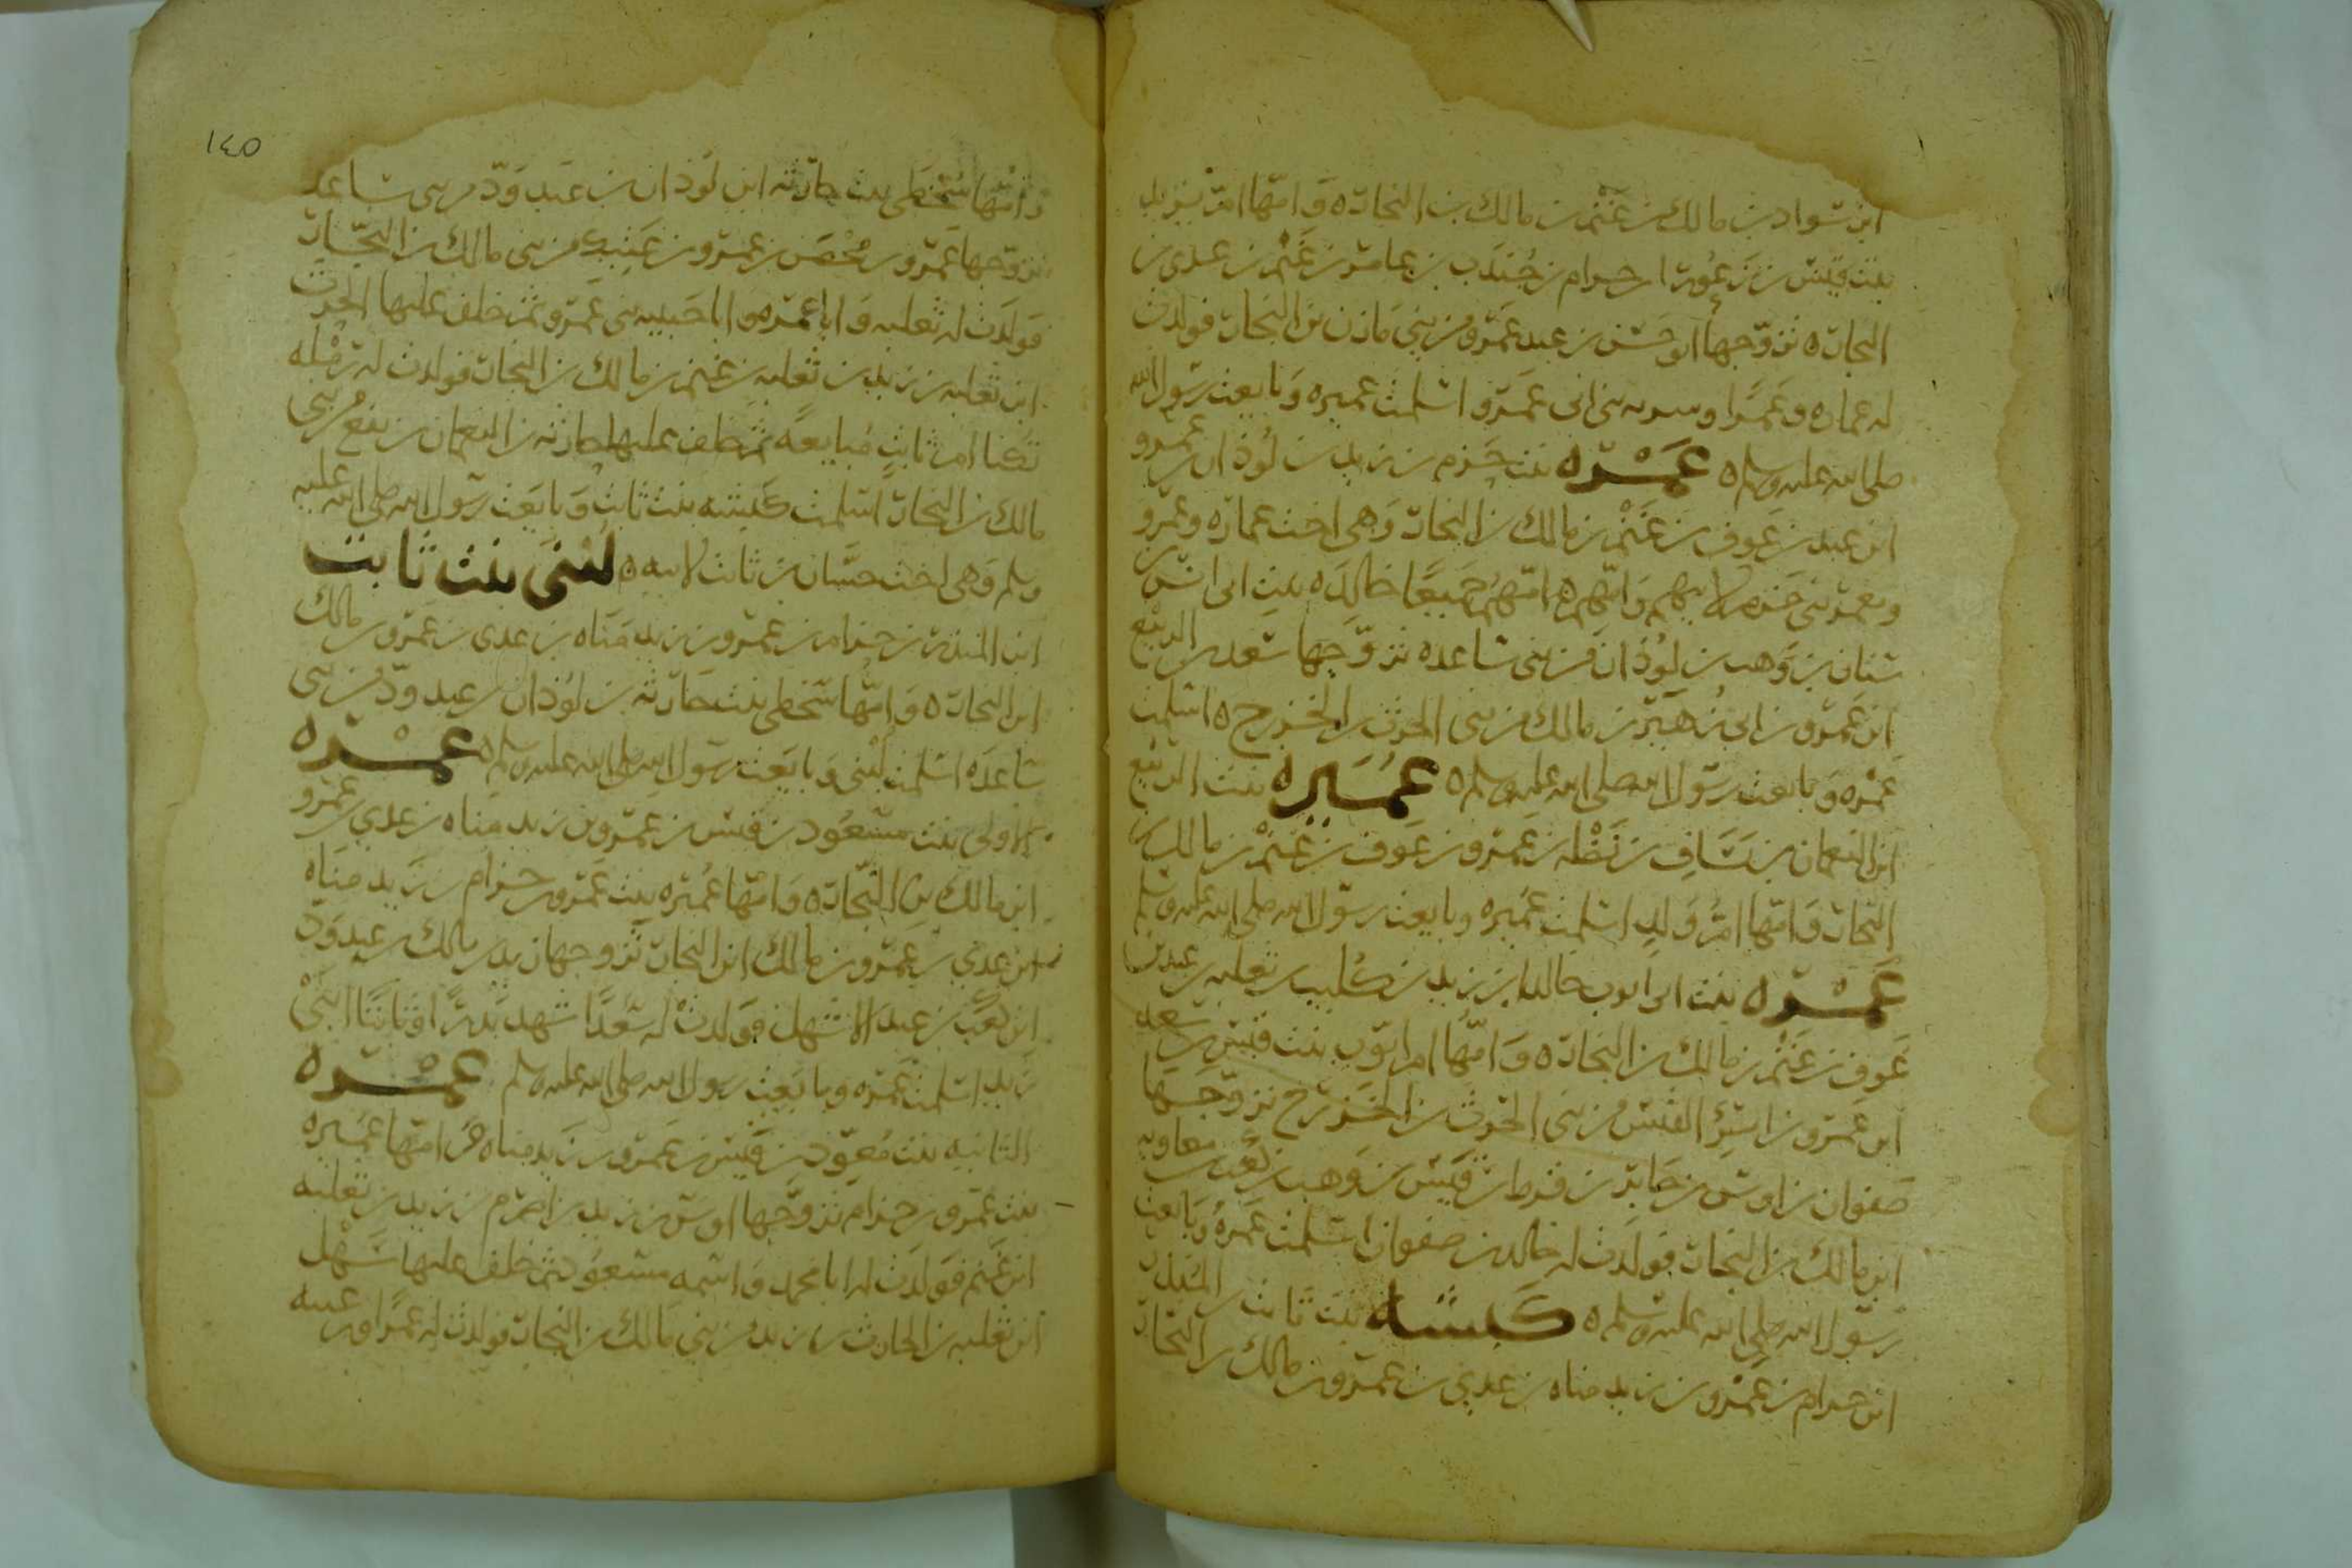 ابن سواد بن مالك بن غنم بن مالك بن النجار ٥ وامها ام يزيد
بنت قيس بن زعورا بن حرام بن جندب بن عامر بن غنم بن عدي بن
النجار ٥ تزوجها ابو حسن بن عبد عمرو من بني مازن بن النجار فولدت
له عماره وعمرا وسريه بني ابي عمرو اسلمت عميره وبايعت رسول الله
صلى الله عليه وسلم ٥ عمره بنت حزم بن زيد بن لوذان بن عمرو
ابن عبد بن عوف بن غنم بن مالك بن النجار وهي اخت عماره وعمرو
ومعمر بني حزم لابيهم وامهم ٥ امهم جميعا خالده بنت ابي انس بن
سنان بن وهب بن لوذان من بني ساعده تزوجها سعد بن الربيع
ابن عمرو بن ابي زهير بن مالك من بني الحرث بن الخزرج ٥ اسلمت
عمره وبايعت رسول الله صلى الله عليه وسلم ٥ عميره بنت الربيع
ابن النعمان بن يساف بن نضله بن عمرو بن عوف بن غنم بن مالك بن
النجار وامها ام ولد اسلمت عميره وبايعت رسول الله صلى الله عليه وسلم
عمره بنت ابي ايوب خالد بن زيد بن كليب بن ثعلبه بن عبد بن
عوف بن غنم بن مالك بن النجار ٥ وامها ام ايوب بنت قيس بن سعد
ابن عمرو بن امرئ القيس من بني الحرث بن الخزرج تزوجها
صفوان بن اوس بن جابر بن قرط بن قيس بن وهب بن كعب بن معاويه
ابن مالك بن النجار فولدت له خالد بن صفوان اسلمت عمره وبايعت
رسول الله صلى الله عليه وسلم ٥ كبشه بنت ثابت بن المنذر
ابن حرام بن عمرو بن زيد مناه بن عدي بن عمرو بن مالك بن النجار
١٤٥
وامها سخطى بنت حارثه ابن لوذان بن عبد ود من بني ساعده
تزوجها عمرو بن محصن بن عمرو بن عتيك من بني مالك بن النجار
فولدت له ثعلبه وابا عمره وابا حبيبه بني عمرو ثم خلف عليها الحرث
ابن ثعلبه بن زيد بن ثعلبه بن غنم بن مالك بن النجار فولدت له رمله
تكنا ام ثابت مبايعه ثم خلف عليها حارثه بن النعمان بن نفع من بني
مالك بن النجار اسلمت كبشه بنت ثابت وبايعت رسول الله صلى الله عليه
وسلم وهي اخت حسان بن ثابت لابيه ٥ لبنى بنت ثابت
ابن المنذر بن حرام بن عمرو بن زيد مناه بن عدي بن عمرو بن مالك
ابن النجار ٥ وامها سخطى بنت حارثه بن لوذان بن عبد ود من بني
ساعده اسلمت لبنى وبايعت رسول الله صلى الله عليه وسلم ٥ عمره
الاولى بنت مسعود بن قيس بن عمرو بن زيد مناه بن عدي بن عمرو
ابن مالك بن النجار ٥ وامها عميره بنت عمرو بن حرام بن زيد مناه
ابن عدي بن عمرو بن مالك ابن النجار تزوجها زيد بن مالك بن عبد ود
ابن كعب بن عبد الاشهل فولدت له سعدا شهد بدرا وثابتا ابني
زيد اسلمت عمره وبايعت رسول الله صلى الله عليه وسلم عمره
الثانيه بنت مسعود بن قيس بن عمرو بن زيد مناه ٥ وامها عميره
بنت عمرو بن حرام تزوجها اوس بن زيد بن اصرم بن زيد بن ثعلبه
ابن غنم فولدت له ابا محمد واسمه مسعود ثم خلف عليها سهل
ابن ثعلبه بن الحارث بن زيد من بني مالك بن النجار فولدت له عمرا ورغيبه